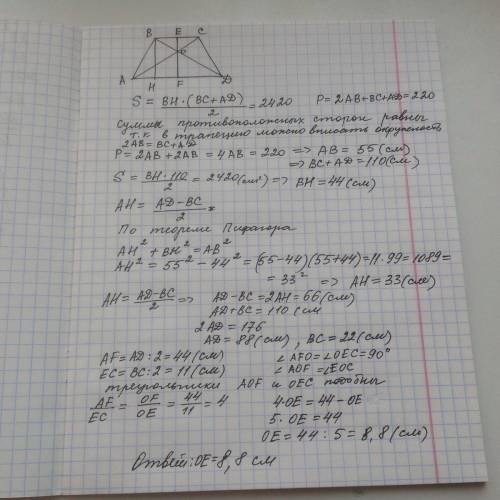 B E C
O
A H F D
S = BH·(BC+AD)/2 = 2420 P = 2AB+BC+AD = 220
Суммы противоположных сторон равны
т.к в трапецию можно вписать окружность
2AB = BC+AD
P = 2AB + 2AB = 4AB = 220 => AB = 55 (см)
=> BC+AD = 110 (см)
S = BH·110/2 = 2420 (см²) => BH = 44 (см)
AH = AD-BC/2
По теореме Пифагора
AH² + BH² = AB²
AH² = 55² - 44² = (55-44)(55+44) = 11·99 = 1089 =
= 33² => AH = 33 (см)
AH = AD-BC/2 => AD-BC = 2AH = 66 (см)
AD+BC = 110 см
2AD = 176
AD = 88 (см), BC = 22 (см)
AF = AD : 2 = 44 (см) ∠AFO = ∠OEC = 90°
EC = BC : 2 = 11 (см) ∠AOF = ∠EOC
треугольники AOF и OEC подобны
AF/EC = OF/OE = 44/11 = 4 4·OE = 44 - OE
5·OE = 44
OE = 44 : 5 = 8,8 (см)
Ответ: OE = 8,8 см